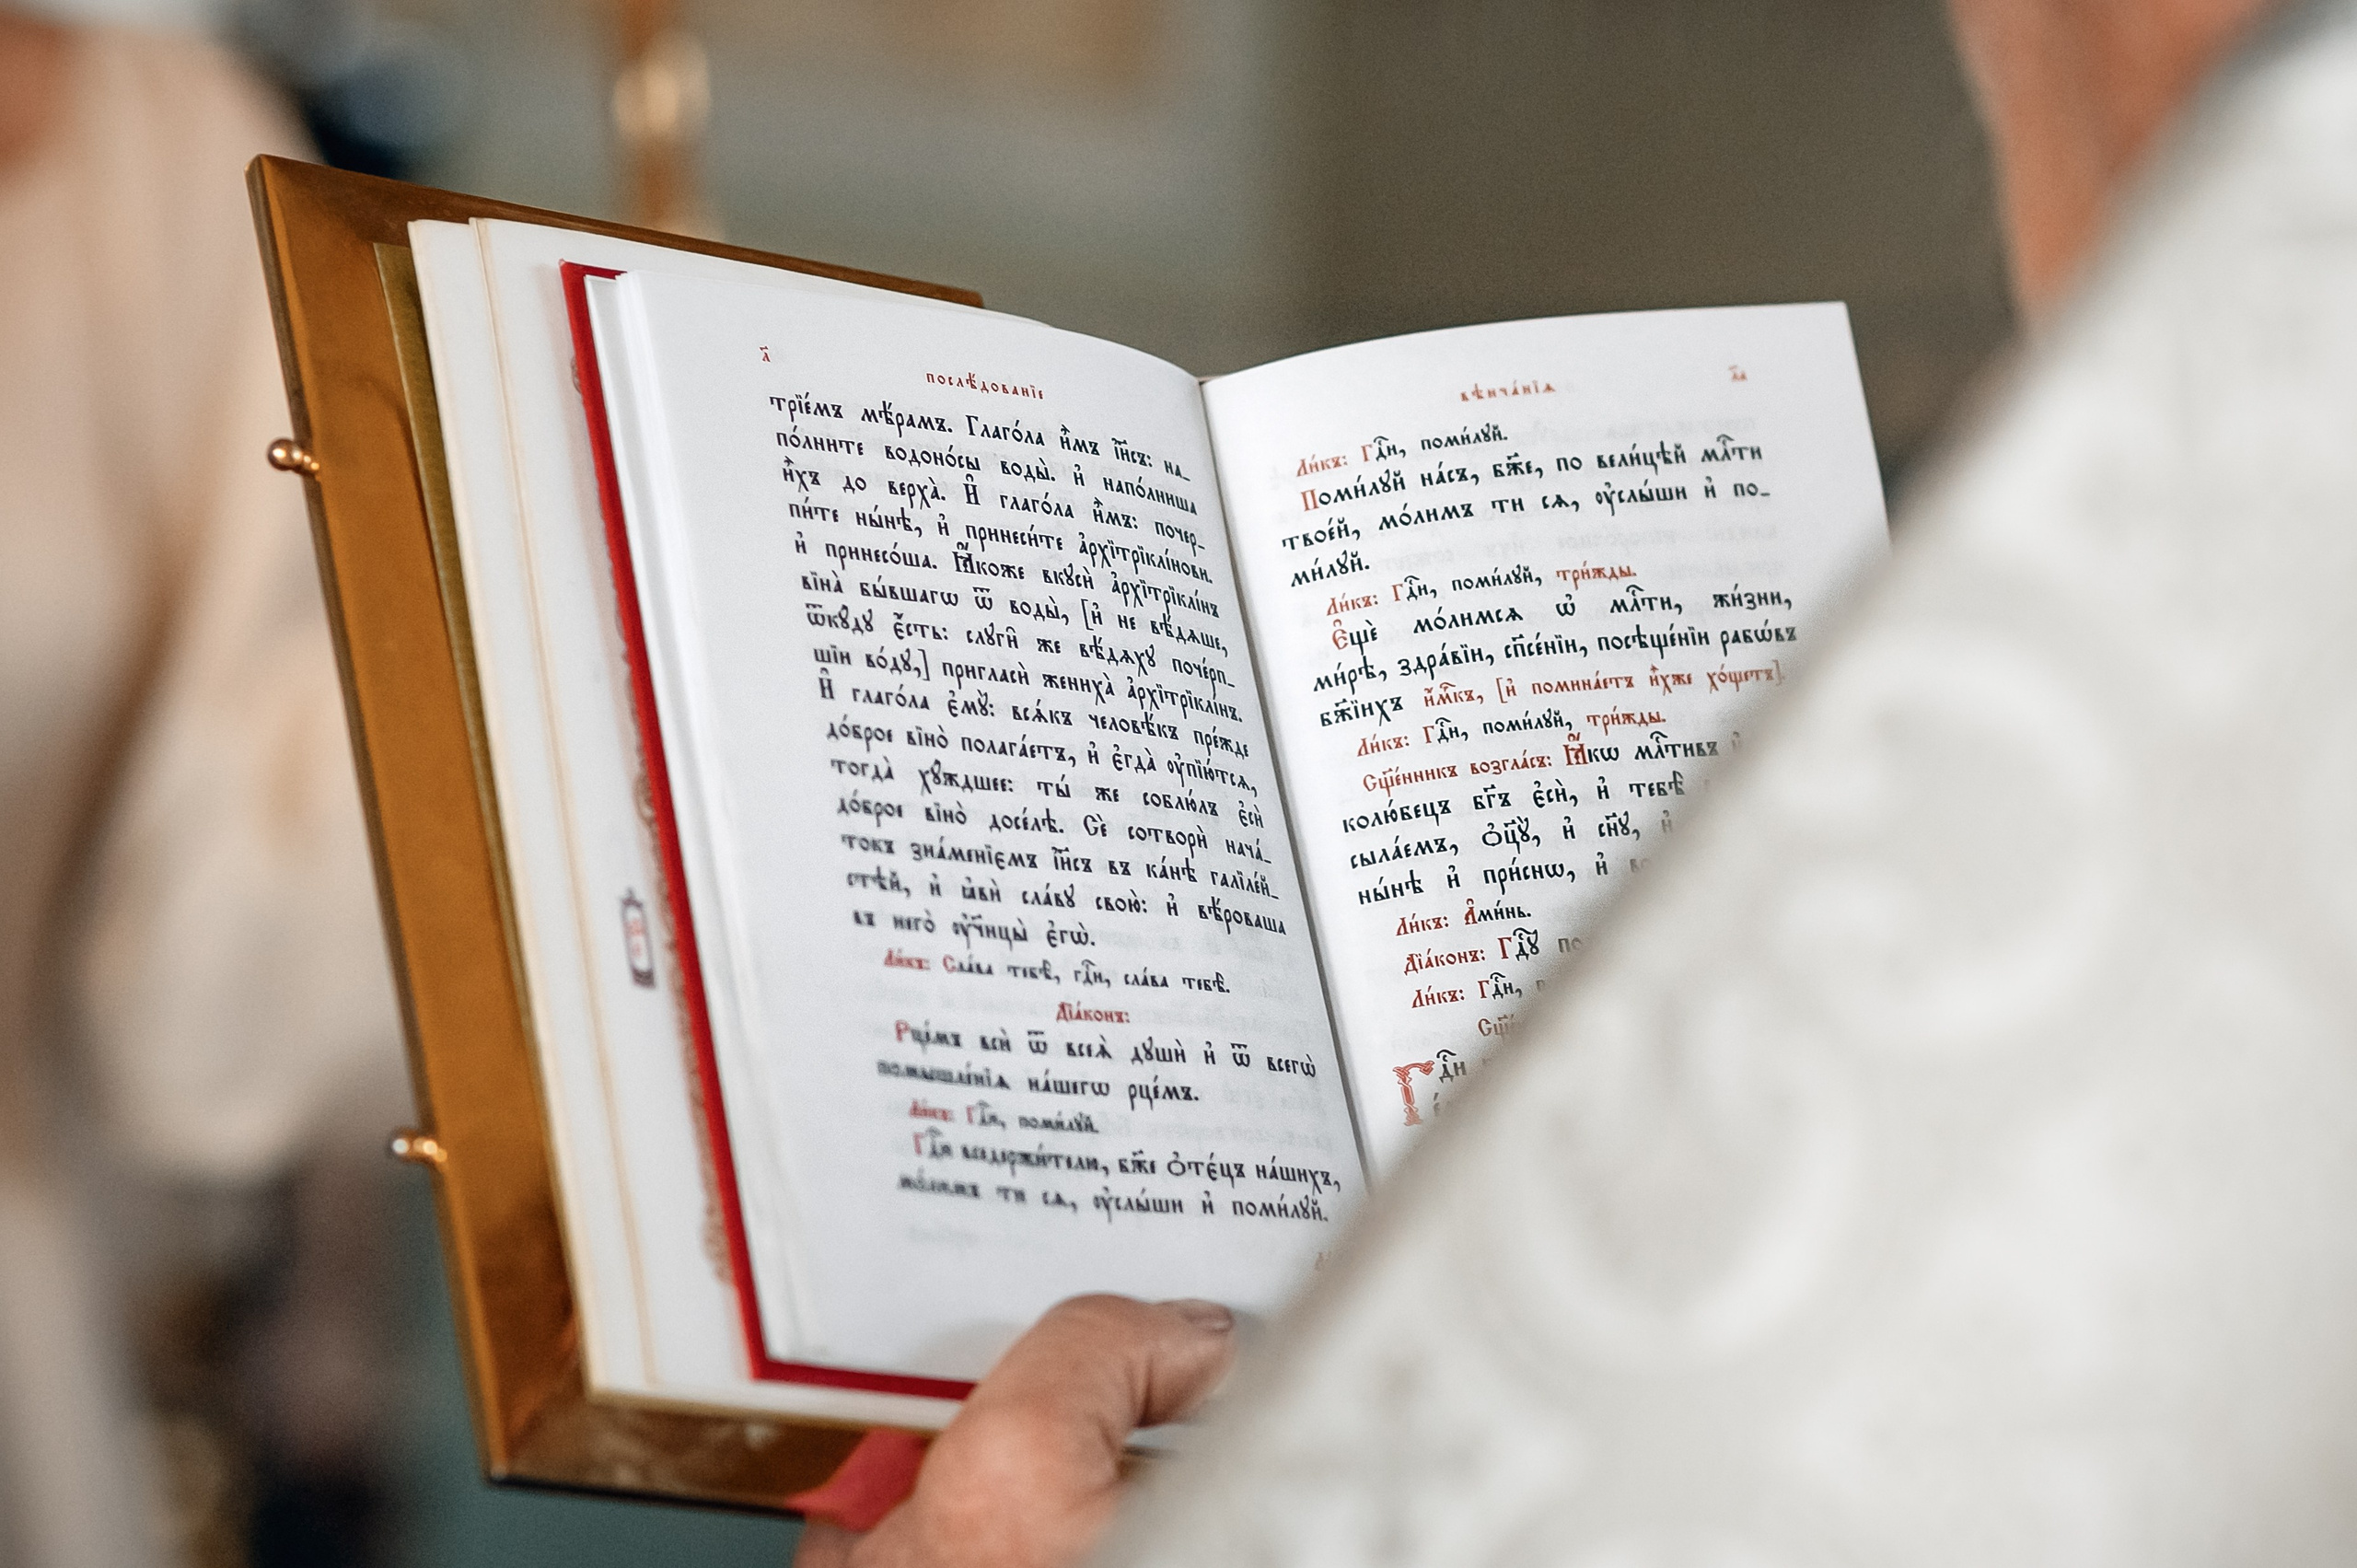 л҃
послѣ́дованїе
трїе́мъ мѣ́рамъ. Глаго́ла и҆̀мъ і҆и҃съ: на_
по́лните водоно́сы воды̀. и҆ напо́лниша
и҆̀хъ до верха̀. И҆ глаго́ла и҆̀мъ: почер_
пи́те ны́нѣ, и҆ принеси́те а҆рхїтрїклі́нови.
и҆ принесо́ша. Ꙗ҆́коже вкꙋсѝ а҆рхїтрїклі́нъ
вїна̀ бы́вшагѡ ѿ воды̀, [и҆ не вѣ́дѧше,
ѿкꙋ́дꙋ є҆́сть: слꙋги̑ же вѣ́дѧхꙋ поче́рп_
шїи во́дꙋ,] пригласѝ жениха̀ а҆рхїтрїклі́нъ.
И҆ глаго́ла є҆мꙋ̀: всѧ́къ человѣ́къ пре́жде
до́брое вїно̀ полага́етъ, и҆ є҆гда̀ ᲂу҆пїю́тсѧ,
тогда̀ хꙋ́ждшее: ты́ же соблю́лъ є҆сѝ
до́брое вїно̀ досе́лѣ. Сѐ сотворѝ нача́_
токъ зна́менїємъ і҆и҃съ въ ка́нѣ галїле́й_
стѣй, и҆ ꙗ҆вѝ сла́вꙋ свою̀: и҆ вѣ́роваша
въ него̀ ᲂу҆чн҃цы̀ є҆гѡ̀.
Ли́къ: Сла́ва тебѣ̀, гдⷭ҇и, сла́ва тебѣ̀.
Дїа́конъ:
Рце́мъ всѝ ѿ всеѧ̀ дꙋшѝ и҆ ѿ всегѡ̀
помышле́нїѧ на́шегѡ рце́мъ.
Ли́къ: Гдⷭ҇и, поми́лꙋй.
Гдⷭ҇и вседержи́телю, бж҃е ѻ҆те́цъ на́шихъ,
мо́лимъ ти сѧ, ᲂу҆слы́ши и҆ поми́лꙋй.
вѣнча́нїѧ
л҃а
Ли́къ: Гдⷭ҇и, поми́лꙋй.
Поми́лꙋй на́съ, бж҃е, по вели́цѣй млⷭ҇ти
твое́й, мо́лимъ ти сѧ, ᲂу҆слы́ши и҆ по_
ми́лꙋй.
Ли́къ: Гдⷭ҇и, поми́лꙋй, три́жды.
Є҆щѐ мо́лимсѧ ѡ҆ млⷭ҇ти, жи́зни,
ми́рѣ, здра́вїи, сп҃се́нїи, посѣще́нїи рабѡ́въ
бж҃їихъ и҆́м҃къ, [и҆ помина́етъ и҆̀хже хо́щетъ].
Ли́къ: Гдⷭ҇и, поми́лꙋй, три́жды.
Сщ҃е́нникъ возгла́съ: Ꙗ҆́кѡ млⷭ҇тивъ и҆
колю́бецъ бг҃ъ є҆сѝ, и҆ тебѣ̀
сыла́емъ, ѻ҆ц҃ꙋ̀, и҆ сн҃ꙋ, и҆
ны́нѣ и҆ при́снѡ, и҆
Ли́къ: А҆ми́нь.
Дїа́конъ: Гдⷭ҇ꙋ по
Ли́къ: Гдⷭ҇и,
Сщ҃е
Гдⷭ҇и